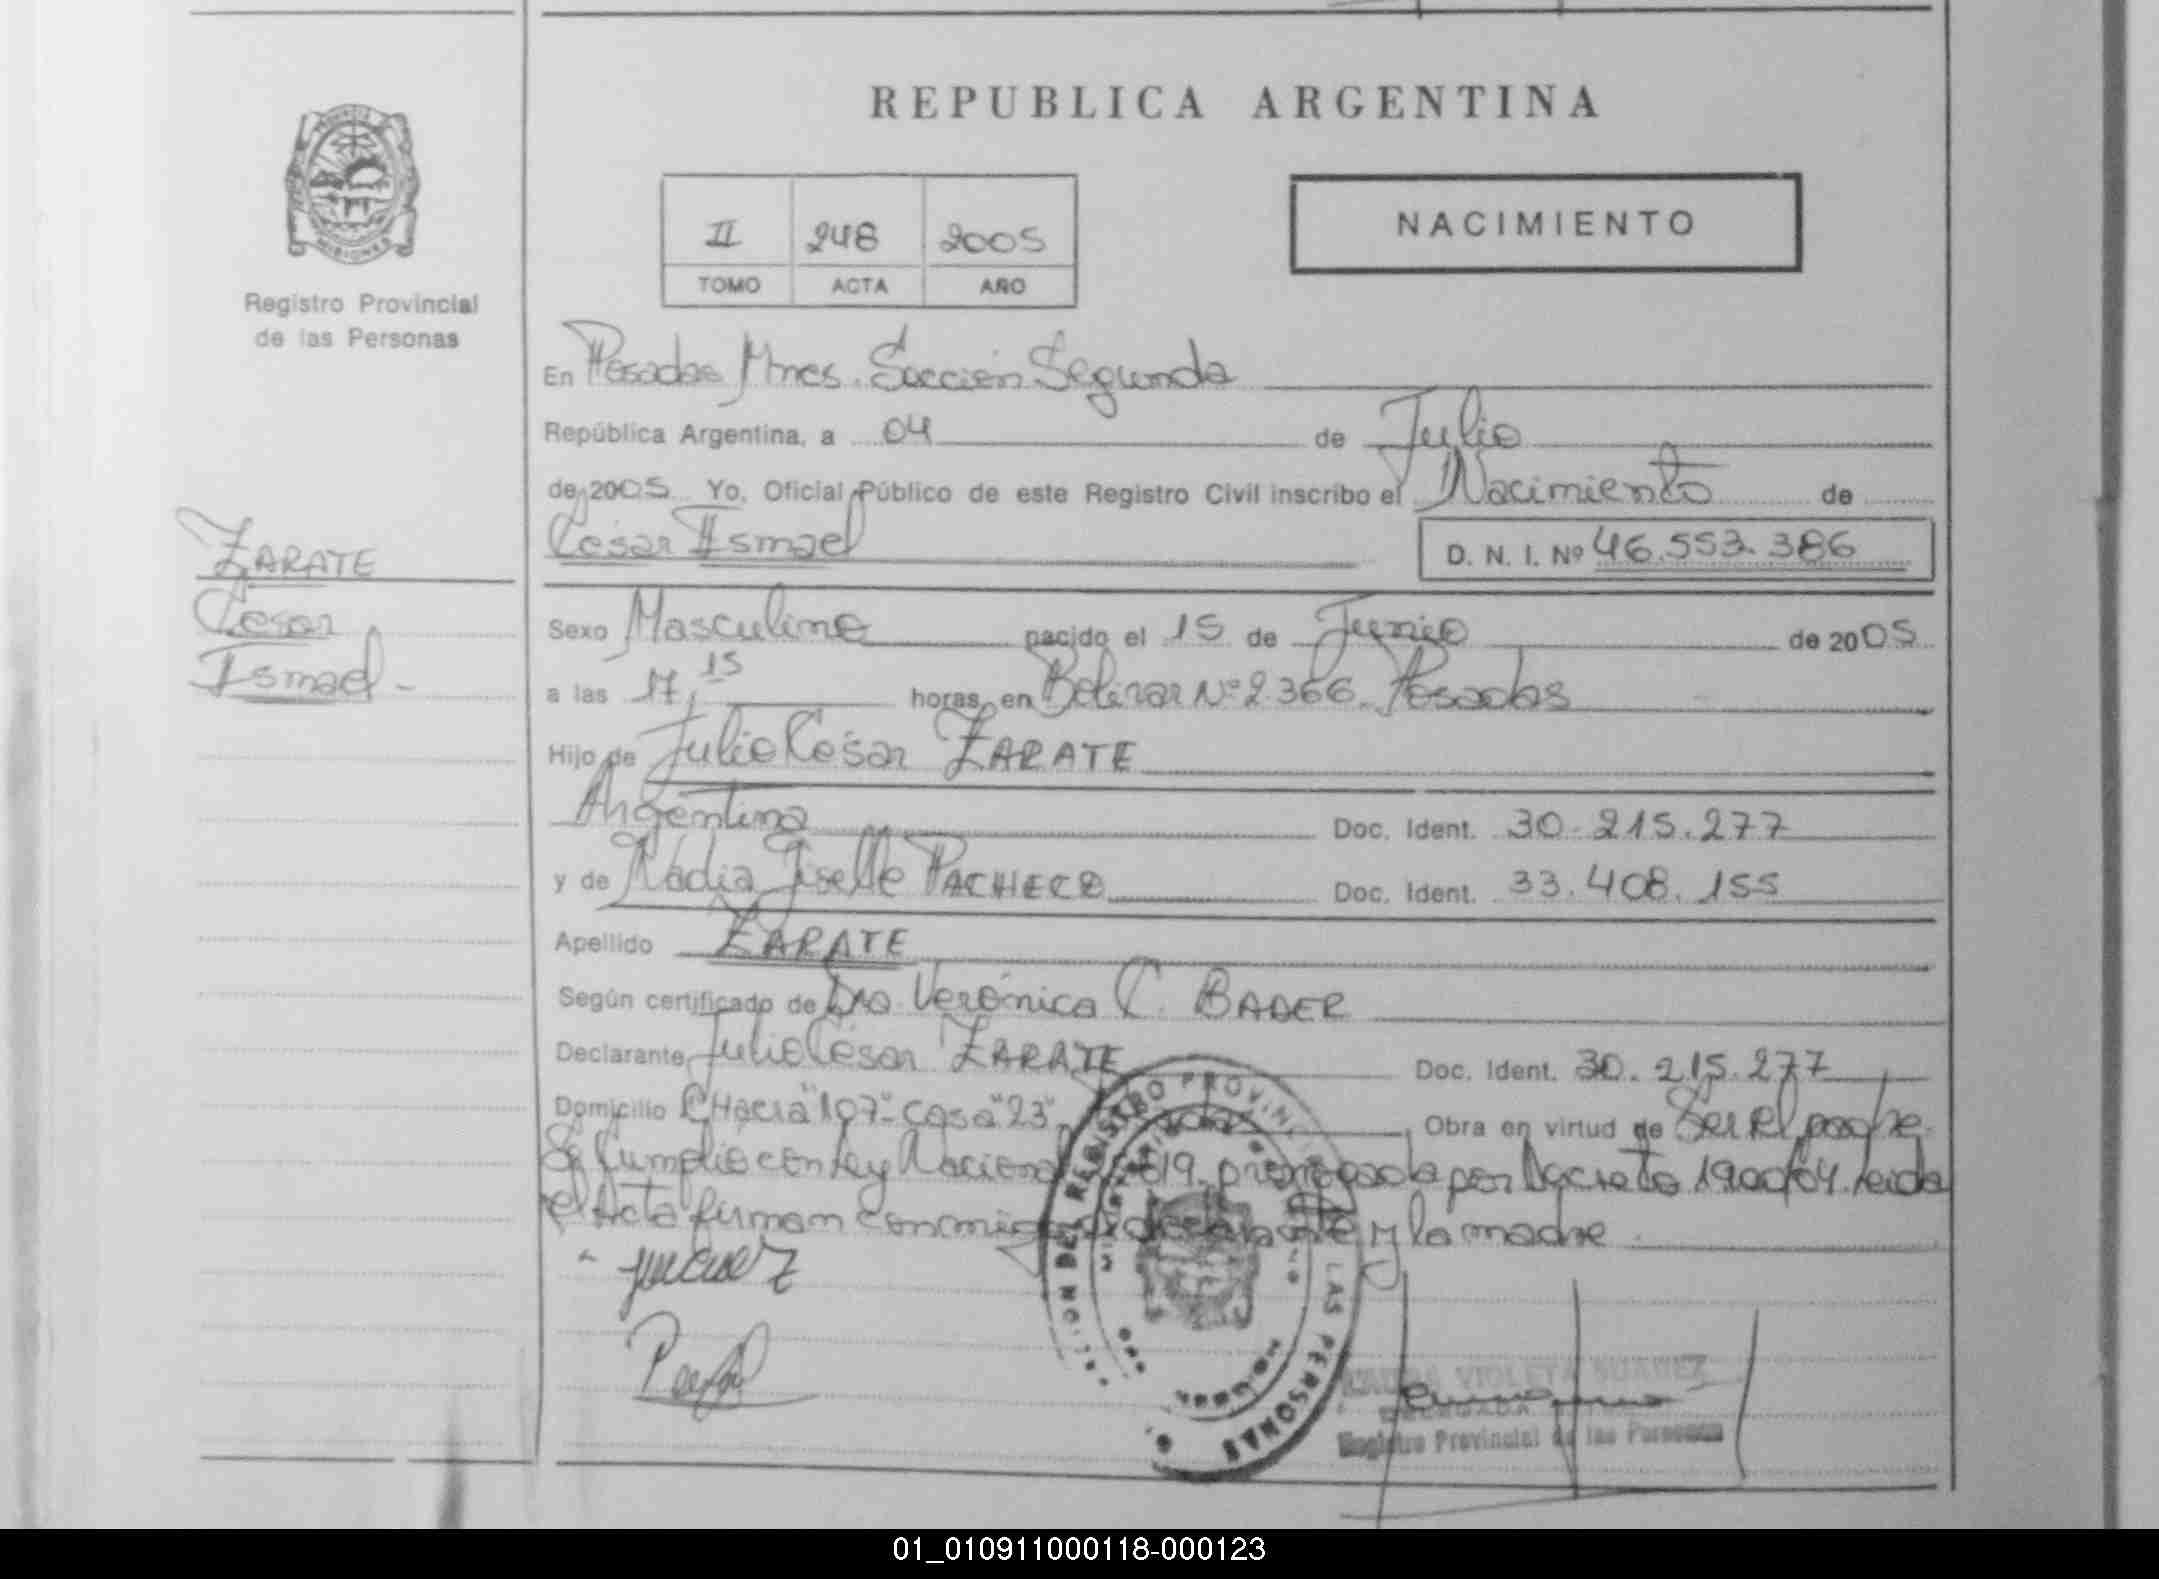 REPUBLICA ARGENTINA
NACIMIENTO
II 248 2005
TOMO ACTA AÑO
Registro Provincial
de las Personas
ZARATE
Cesar
Ismael -
En Posadas Mnes. Sección Segunda
República Argentina, a 04 de Julio
de 2005 Yo, Oficial Público de este Registro Civil inscribo el Nacimiento de
Cesar Ismael D. N. I. Nº 46.553.386
Sexo Masculino nacido el 15 de Junio de 2005
a las 17,15 horas, en Bolivar Nº 2.366. Posadas
Hijo de Julio César ZARATE
Argentina Doc. Ident. 30.215.277
y de Nadia Giselle PACHECO Doc. Ident. 33.408.155
Apellido ZARATE
Según certificado de Dra. Verónica C. BADER
Declarante Julio César ZARATE Doc. Ident. 30.215.277
Domicilio CHacra "107" - casa "23" Obra en virtud de Ser el padre.
Se Cumplio con Ley Nacional prorrogada por Decreto 1900/04. leida
el Acta firman conmigo declarante y la madre
REGISTRO PROVINCIAL LAS PERSONAS
VIOLETA SUAREZ
DELEGADA
Registro Provincial de las Personas
01_010911000118-000123